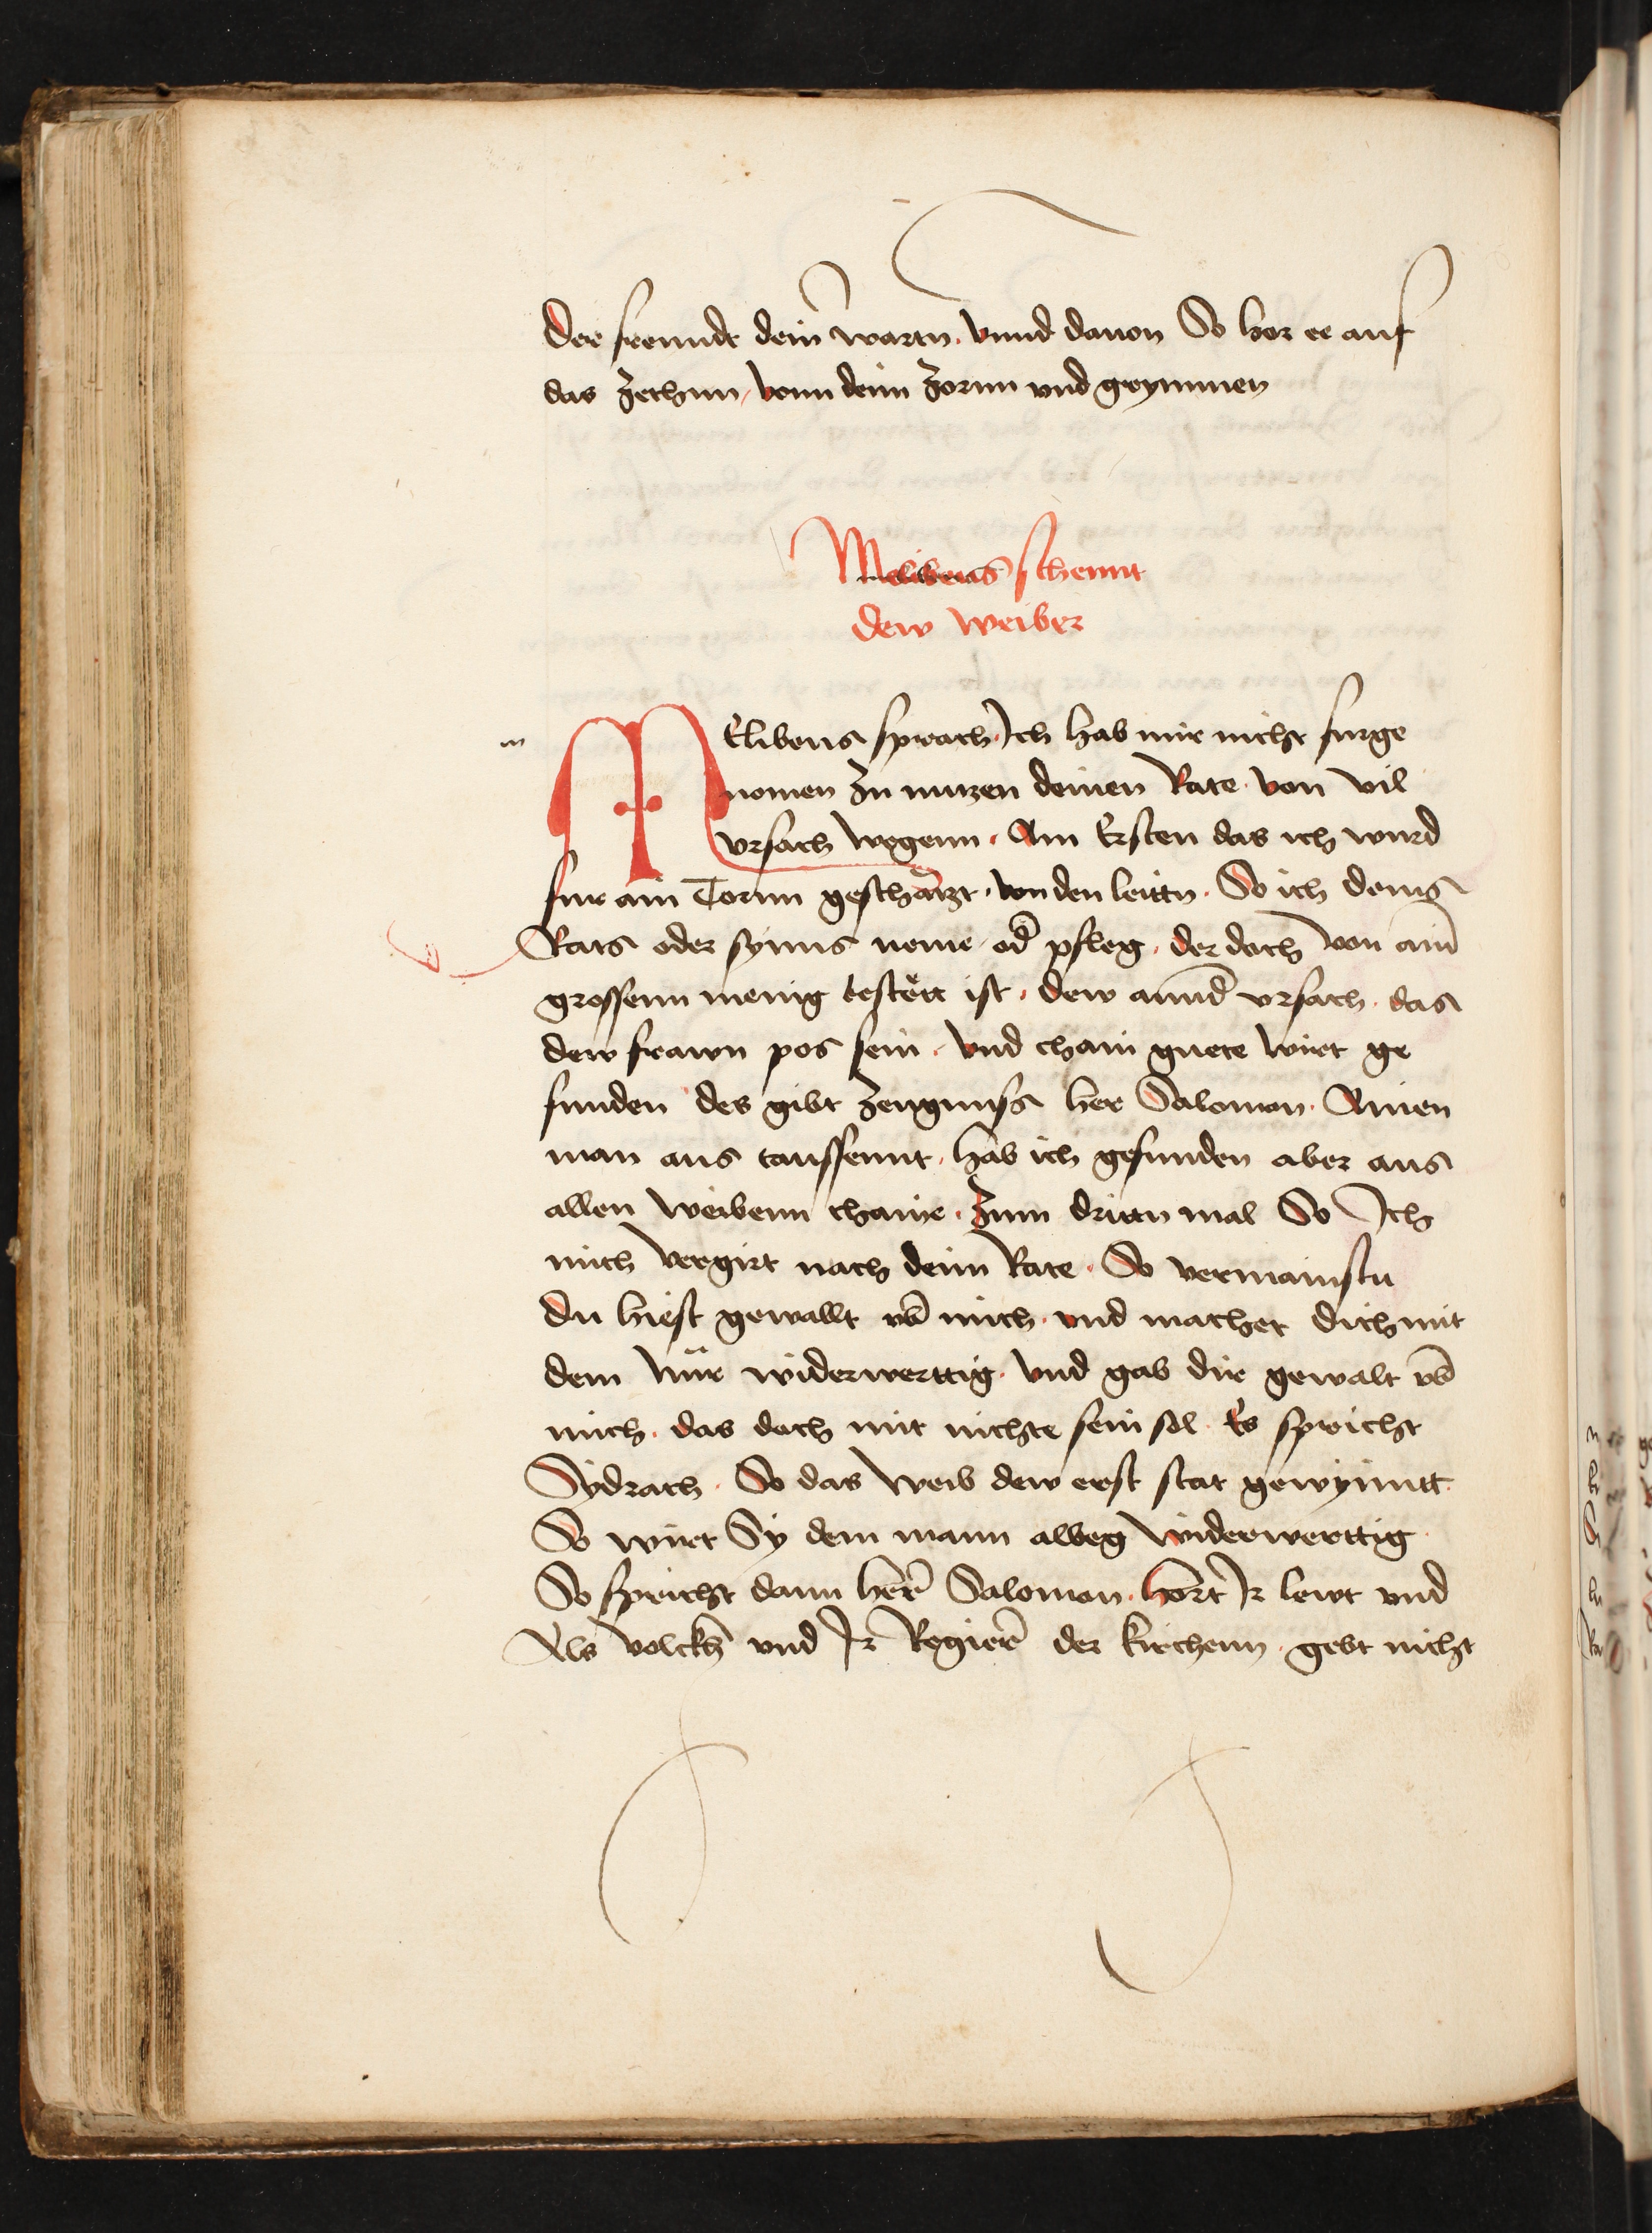 Der freundt dein̄ wartn. vnnd dauon So hor er auf
das zechnn, vonn deim zornn vnd grymmen
Melibeus schennt
dew weiber
m
MElibeus sprach Ich hab mir nicht furge
nomen zu nutzen deinen Rate. von vil
vrsach wegenn. Am Ersten das ich wurd
fur ain Tornn geschätzt. von den leittn. So ich deins
Rats oder synns neme od̄ pfleg. der doch von ain̄
grossenn menig bestëtt ist. dew annd̄ vrsach. das
dew frawn pos sein. vnd chain guete wirt ge
funden des gibt zeugnuss her Salomon. Ainen
man aus taussennt. hab ich gefunden aber aus
allen weibenn chaine. Zum drittn mal So Ich
mich vergirt nach deim Rate. So vermainstu
du hiest gewallt vb̄ mich. vnd machet dich mit
dem mir widerwerttig. vnd gab dir gewalt vb̄
mich. das doch mit nichte sein sol. Es spricht
Sydrach. So das weib dew erst stat gewynntt.
So wirt Sy dem mann alweg widerwerttig.
So spricht dann her̄ Salomon. hort Ir lewt vnd
Als volckh vnd Ir Regier̄ der kirchenn. gebt nicht